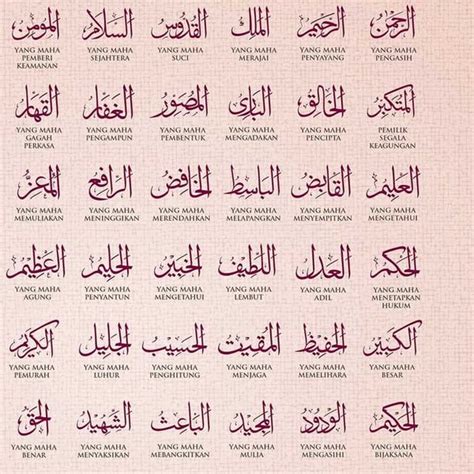 الرحمن
YANG MAHA
PENGASIH
الرحيم
YANG MAHA
PENYAYANG
الملك
YANG MAHA
MERAJAI
القدوس
YANG MAHA
SUCI
السلام
YANG MAHA
SEJAHTERA
المؤمن
YANG MAHA
PEMBERI
KEAMANAN
المتكبر
PEMILIK
SEGALA
KEAGUNGAN
الخالق
YANG MAHA
PENCIPTA
البارئ
YANG MAHA
MENGADAKAN
المصور
YANG MAHA
PEMBENTUK
الغفار
YANG MAHA
PENGAMPUN
القهار
YANG MAHA
GAGAH
PERKASA
العليم
YANG MAHA
MENGETAHUI
القابض
YANG MAHA
MENYEMPITKAN
الباسط
YANG MAHA
MELAPANGKAN
الخافض
YANG MAHA
MERENDAHKAN
الرافع
YANG MAHA
MENINGGIKAN
المعز
YANG MAHA
MEMULIAKAN
الحكم
YANG MAHA
MENETAPKAN
HUKUM
العدل
YANG MAHA
ADIL
اللطيف
YANG MAHA
LEMBUT
الخبير
YANG MAHA
MENGETAHUI
الحليم
YANG MAHA
PENYANTUN
العظيم
YANG MAHA
AGUNG
الكبير
YANG MAHA
BESAR
الحفيظ
YANG MAHA
MEMELIHARA
المقيت
YANG MAHA
MENJAGA
الحسيب
YANG MAHA
PENGHITUNG
الجليل
YANG MAHA
LUHUR
الكريم
YANG MAHA
PEMURAH
الحكيم
YANG MAHA
BIJAKSANA
الودود
YANG MAHA
MENGASIHI
المجيد
YANG MAHA
MULIA
الباعث
YANG MAHA
MEBANGKITKAN
الشهيد
YANG MAHA
MENYAKSIKAN
الحق
YANG MAHA
BENAR